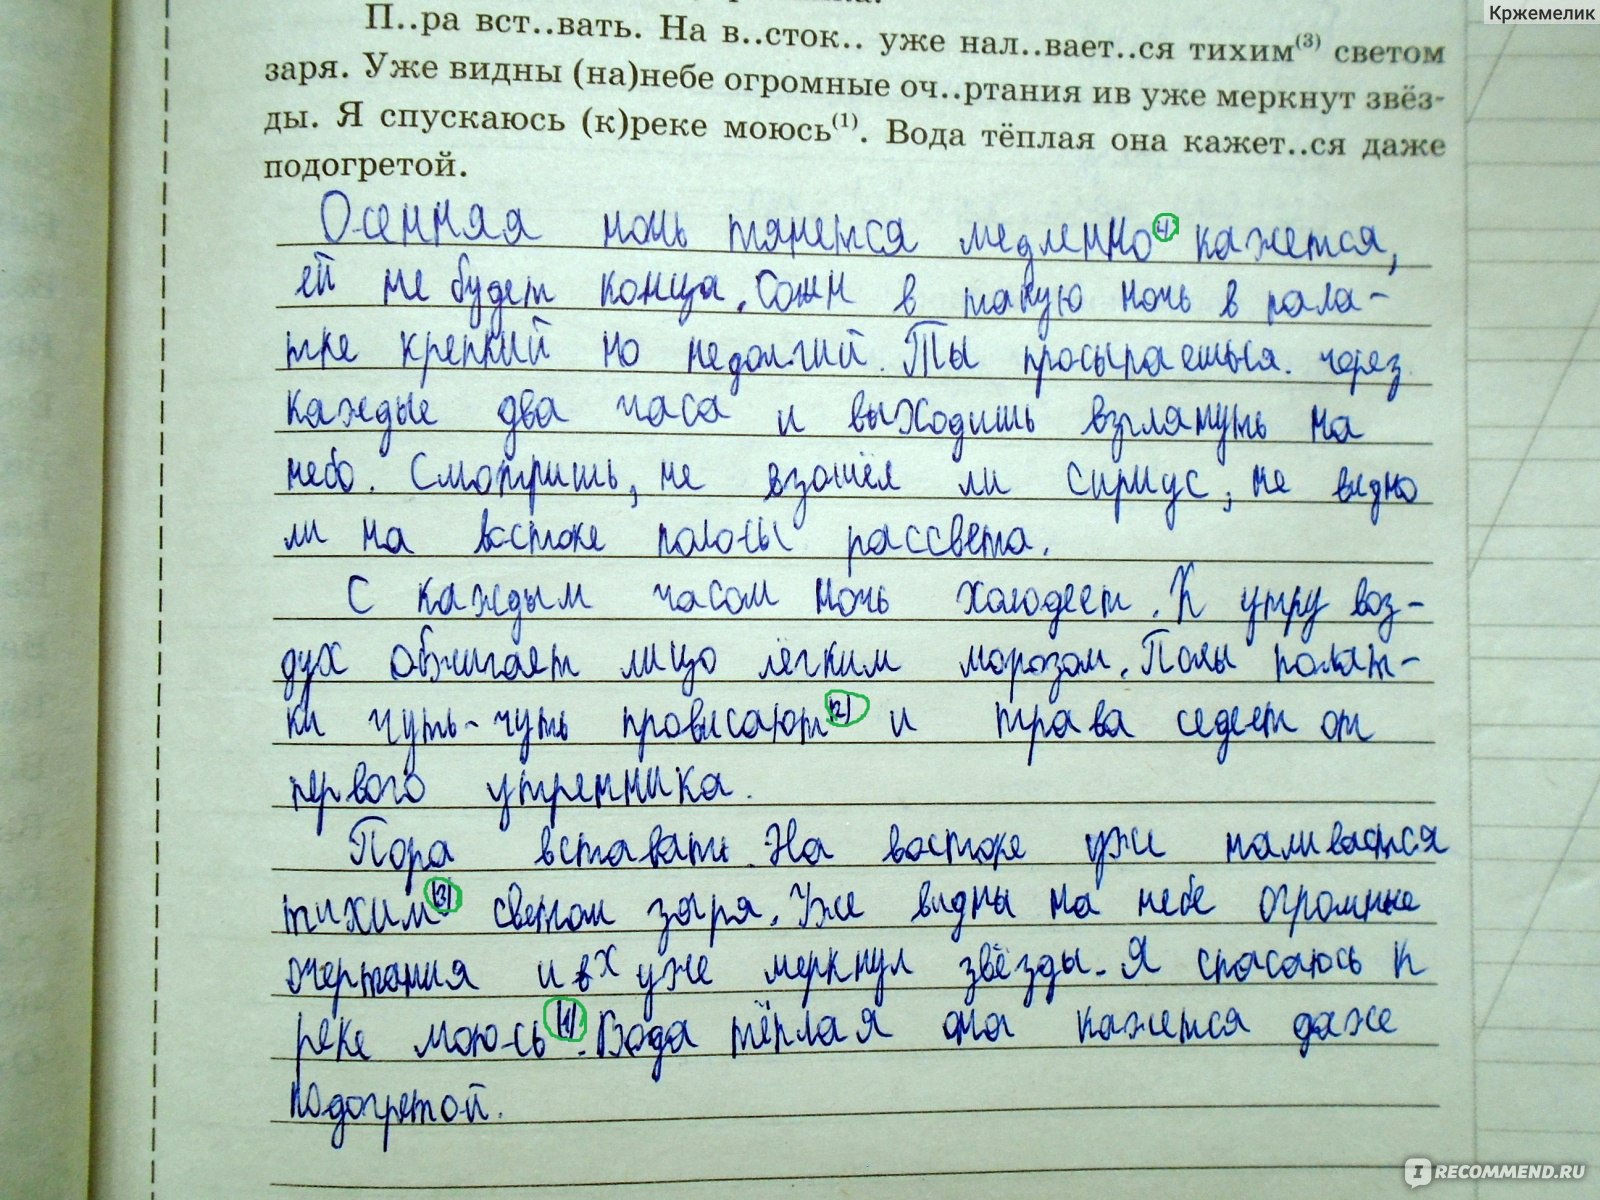 Кржемелик
П..ра вст..вать. На в..сток.. уже нал..вает..ся тихим(3) светом
заря. Уже видны (на)небе огромные оч..ртания ив уже меркнут звёз-
ды. Я спускаюсь (к)реке моюсь(1). Вода тёплая она кажет..ся даже
подогретой.
Осенняя ночь тянется медленно кажется,
ей не будет конца. Сон в такую ночь в пала-
тке крепкий но недолгий. Ты просыпаешься. через
каждые два часа и выходишь взглянуть на
небо. Смотришь, не взошёл ли Сириус, не видно
ли на востоке полосы рассвета.
С каждым часом ночь холодеет. К утру воз-
дух обжигает лицо лёгким морозом. Полы палат-
ки чуть-чуть провисают(2) и трава седеет от
первого утренника.
Пора вставать. На востоке уже наливается
тихим(3) светом заря. Уже видны на небе огромные
очертания ивх уже меркнул звёзды. Я спасаюсь к
реке моюсь(1). Вода тёплая она кажется даже
подогретой.
IRECOMMEND.RU